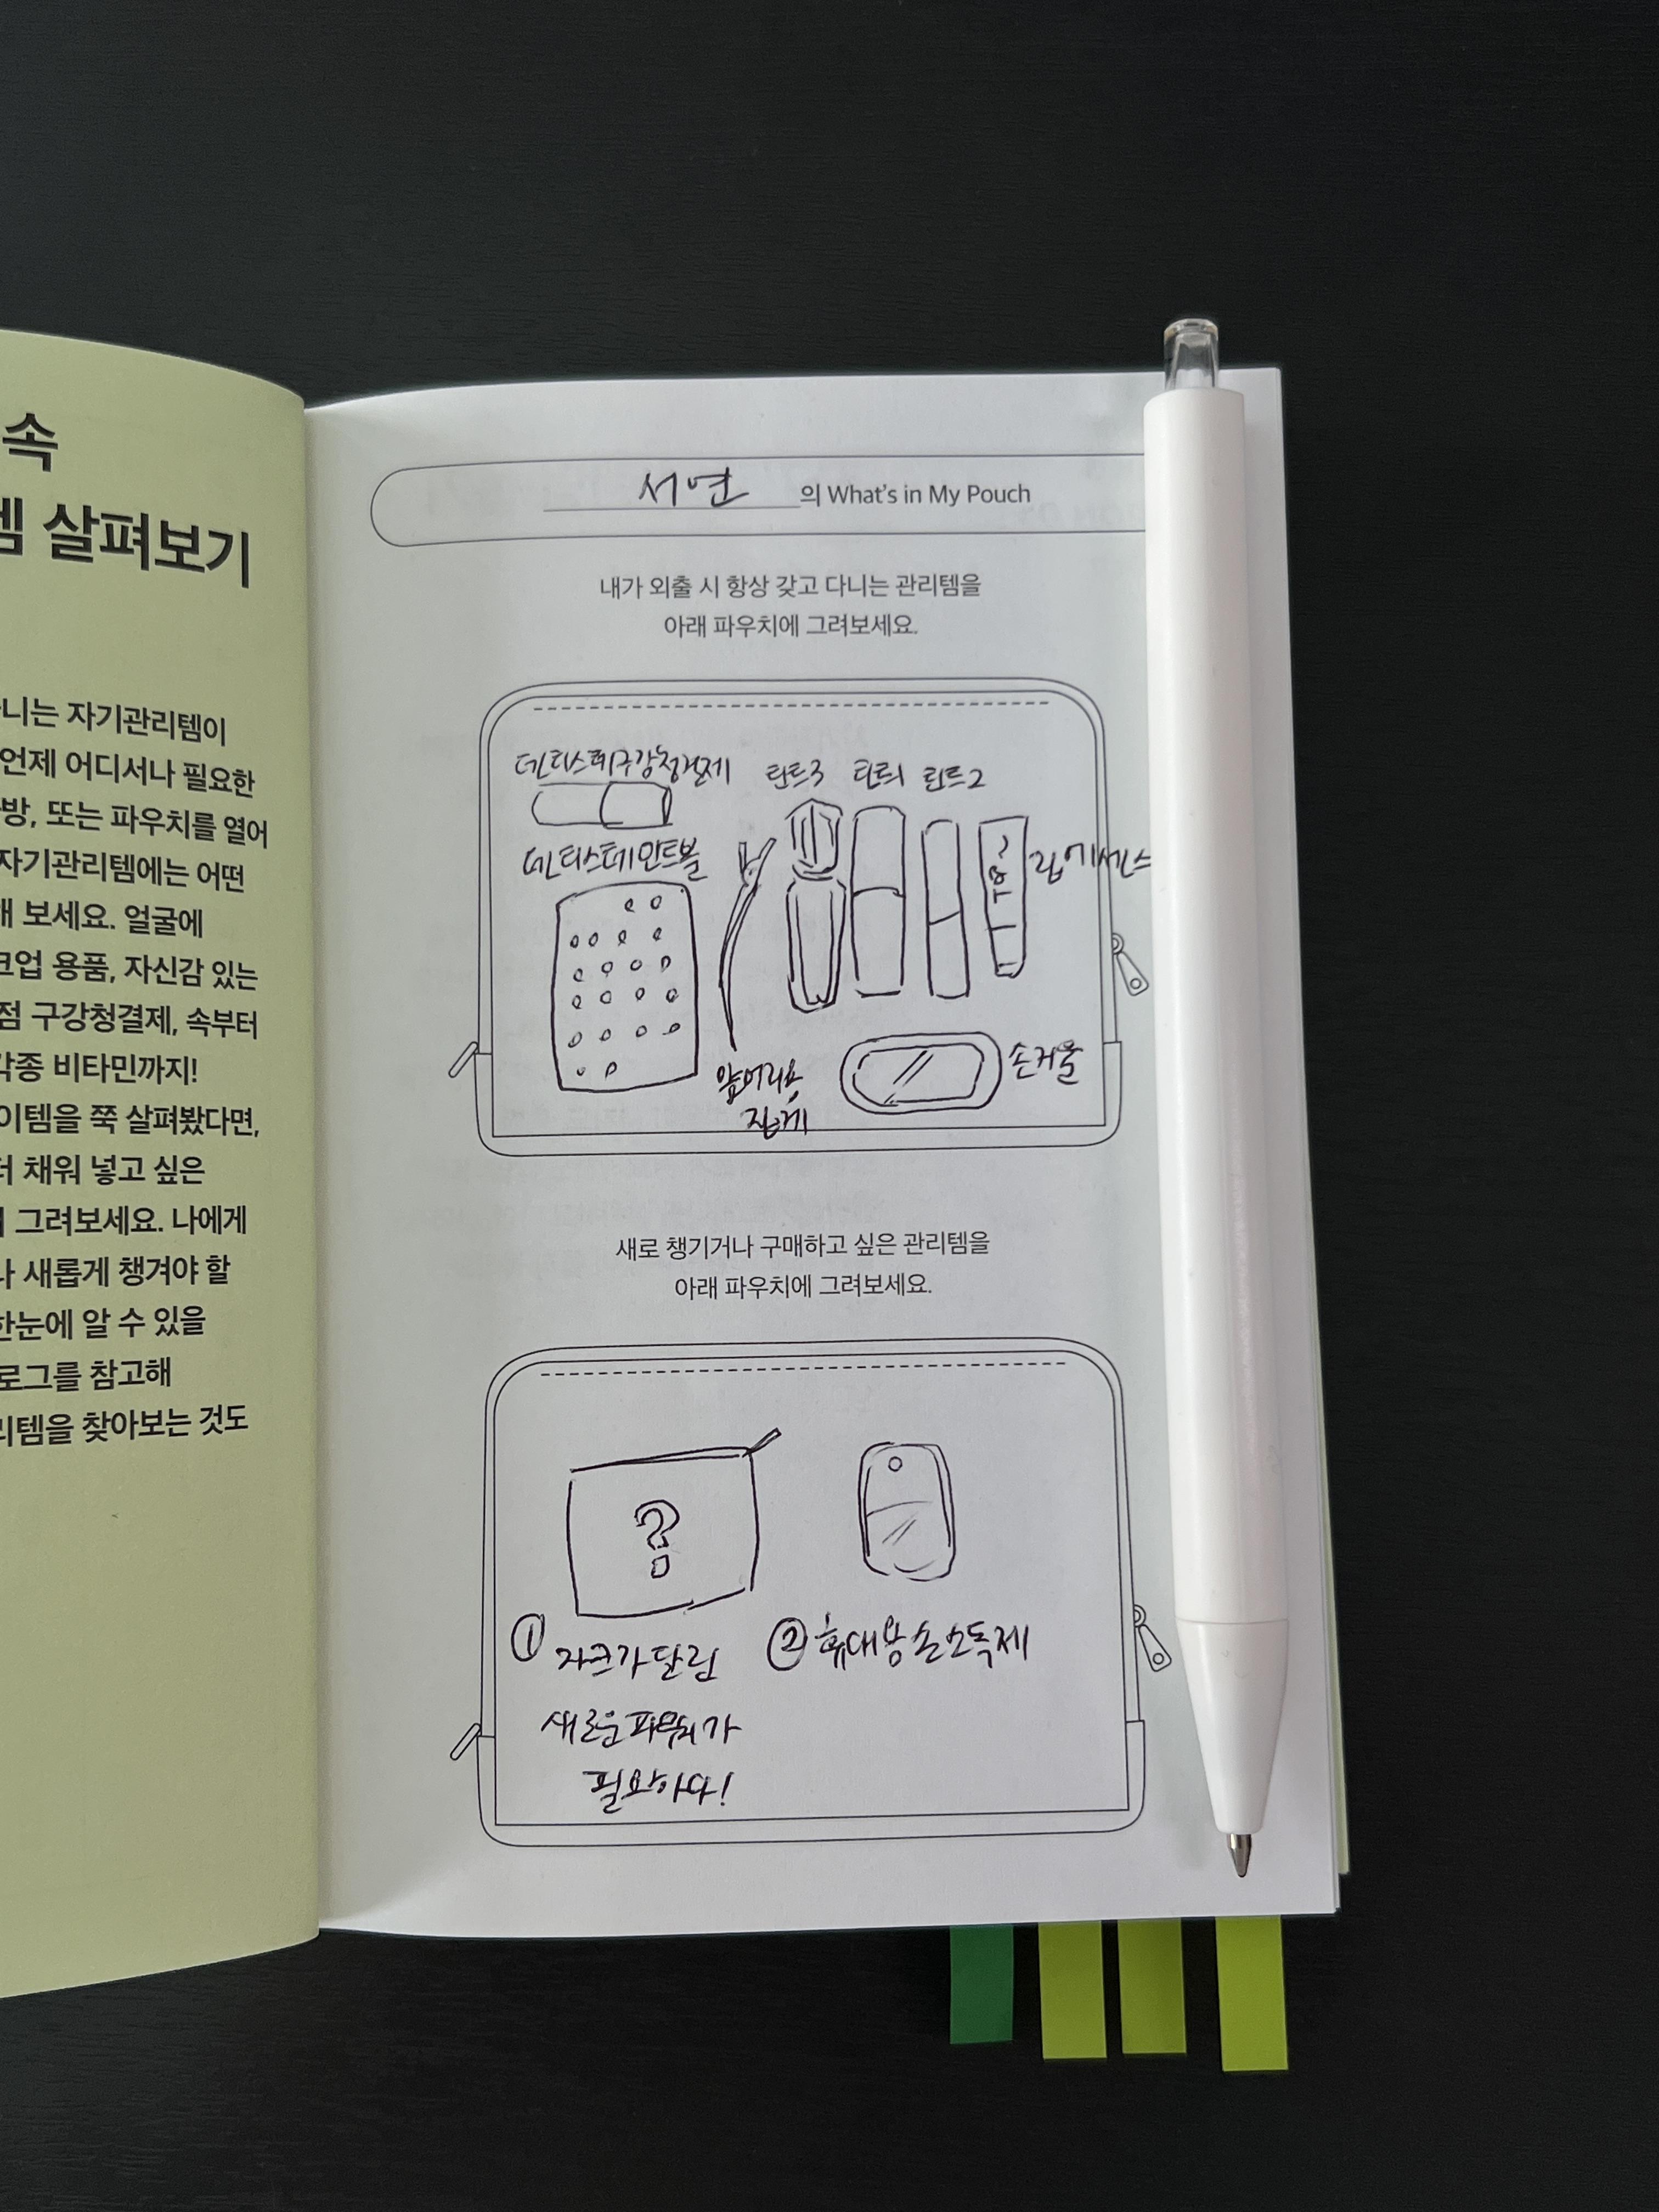 속
템 살펴보기
니는 자기관리템이
언제 어디서나 필요한
방, 또는 파우치를 열어
자기관리템에는 어떤
해 보세요. 얼굴에
크업 용품, 자신감 있는
점 구강청결제, 속부터
각종 비타민까지!
이템을 쭉 살펴봤다면,
더 채워 넣고 싶은
그려보세요. 나에게
나 새롭게 챙겨야 할
한눈에 알 수 있을
로그를 참고해
리템을 찾아보는 것도
서연의 What's in My Pouch
내가 외출 시 항상 갖고 다니는 관리템을
아래 파우치에 그려보세요.
덴티스테구강청결제
틴트3 틴트1 틴트2
덴티스테민트볼
립에센스
앞머리용
집게
손거울
새로 챙기거나 구매하고 싶은 관리템을
아래 파우치에 그려보세요.
?
① 자크가 달린
새로운 파우치가
필요하다!
② 휴대용 손소독제